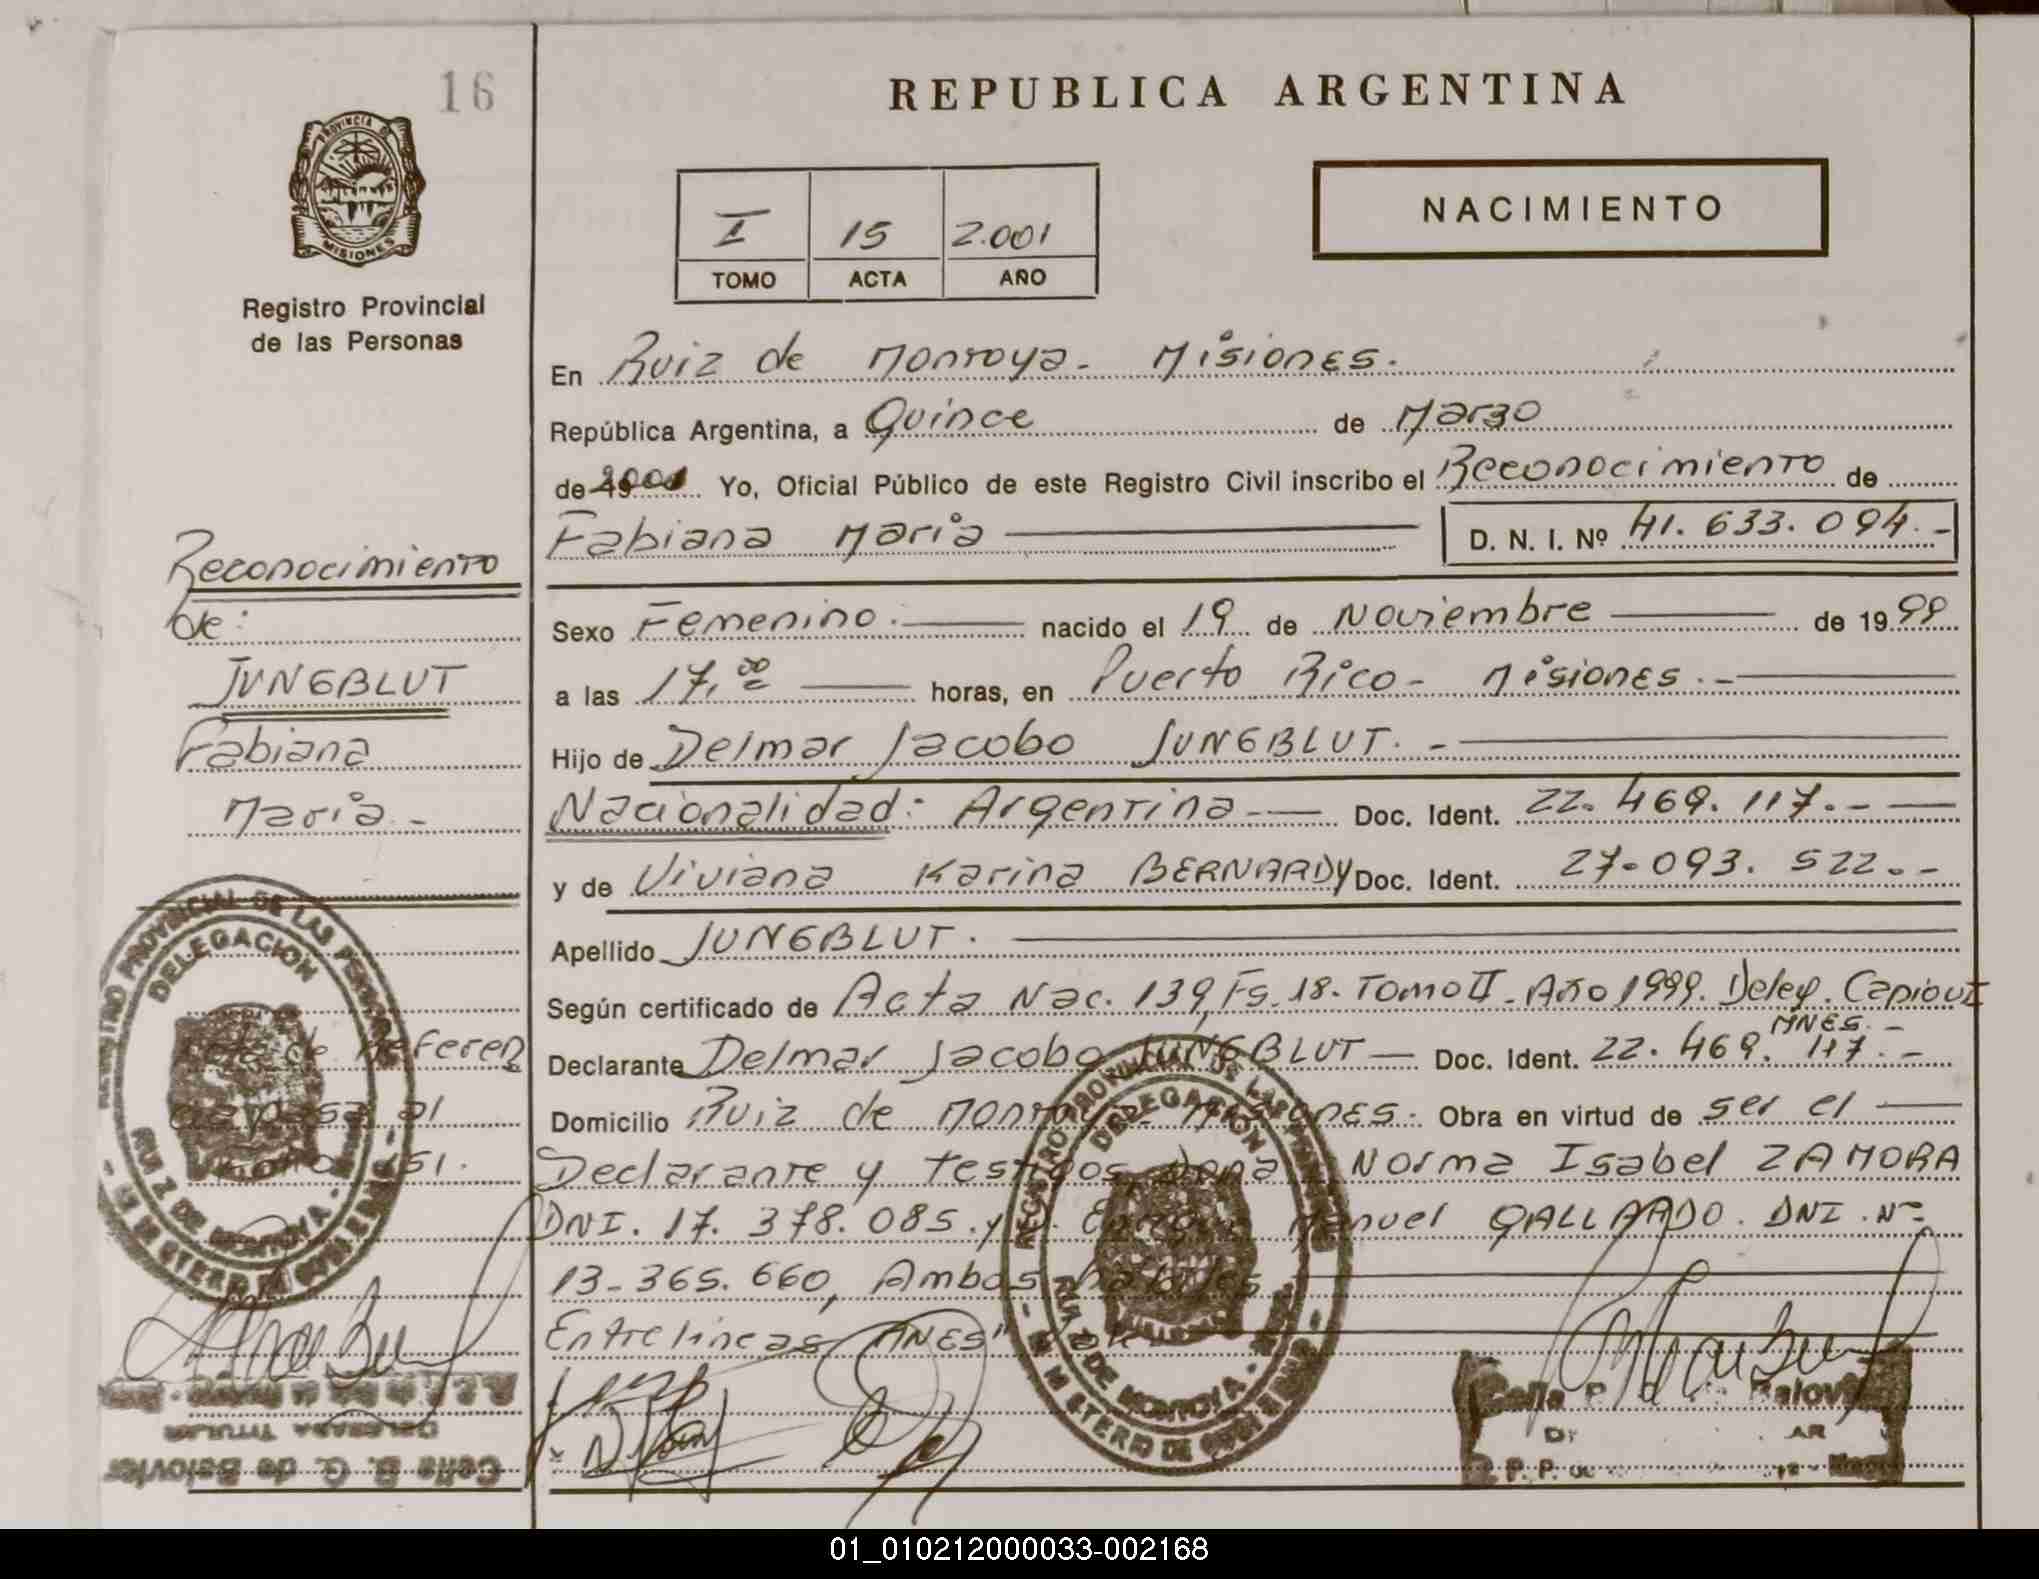 16
PROVINCIA DE
MISIONES
Registro Provincial
de las Personas
REPUBLICA ARGENTINA
I 15 2.001
TOMO ACTA AÑO
NACIMIENTO
En Ruiz de Montoya - Misiones.
República Argentina, a Quince de Marzo
de 2001 Yo, Oficial Público de este Registro Civil inscribo el Reconocimiento de
Fabiana Maria D. N. I. Nº 41. 633. 094.-
Sexo Femenino. nacido el 19 de Noviembre de 1999
a las 17,00 horas, en Puerto Rico - Misiones.-
Hijo de Delmar Jacobo JUNGBLUT.-
Nacionalidad: Argentina.- Doc. Ident. 22. 469. 117.-
y de Viviana Karina BERNARDY Doc. Ident. 27-093. 522.-
Apellido JUNGBLUT.
Según certificado de Acta Nac. 139, Fs. 18. Tomo II. Año 1999. Deleg. Capioví
MNES.-
Declarante Delmar Jacobo JUNGBLUT Doc. Ident. 22. 469. 117.-
Domicilio Ruiz de Montoya - Misiones. Obra en virtud de ser el
Declarante y testigos, Dona Norma Isabel ZAMORA
DNI. 17. 378. 085. y Manuel GALLARDO. DNI. Nº
13-365. 660, Ambos hábiles
Entrelineas "MNES"
Reconocimiento
de:
JUNGBLUT
Fabiana
Maria.-
Referen
al
REGISTRO PROVINCIAL DE LAS PERSONAS
DELEGACION
RUIZ DE MONTOYA
REGISTRO PROVINCIAL DE LAS PERSONAS
DELEGACION
RUIZ DE MONTOYA
Celia B. G. de Balovier
DELEGADA TITULAR
01_010212000033-002168